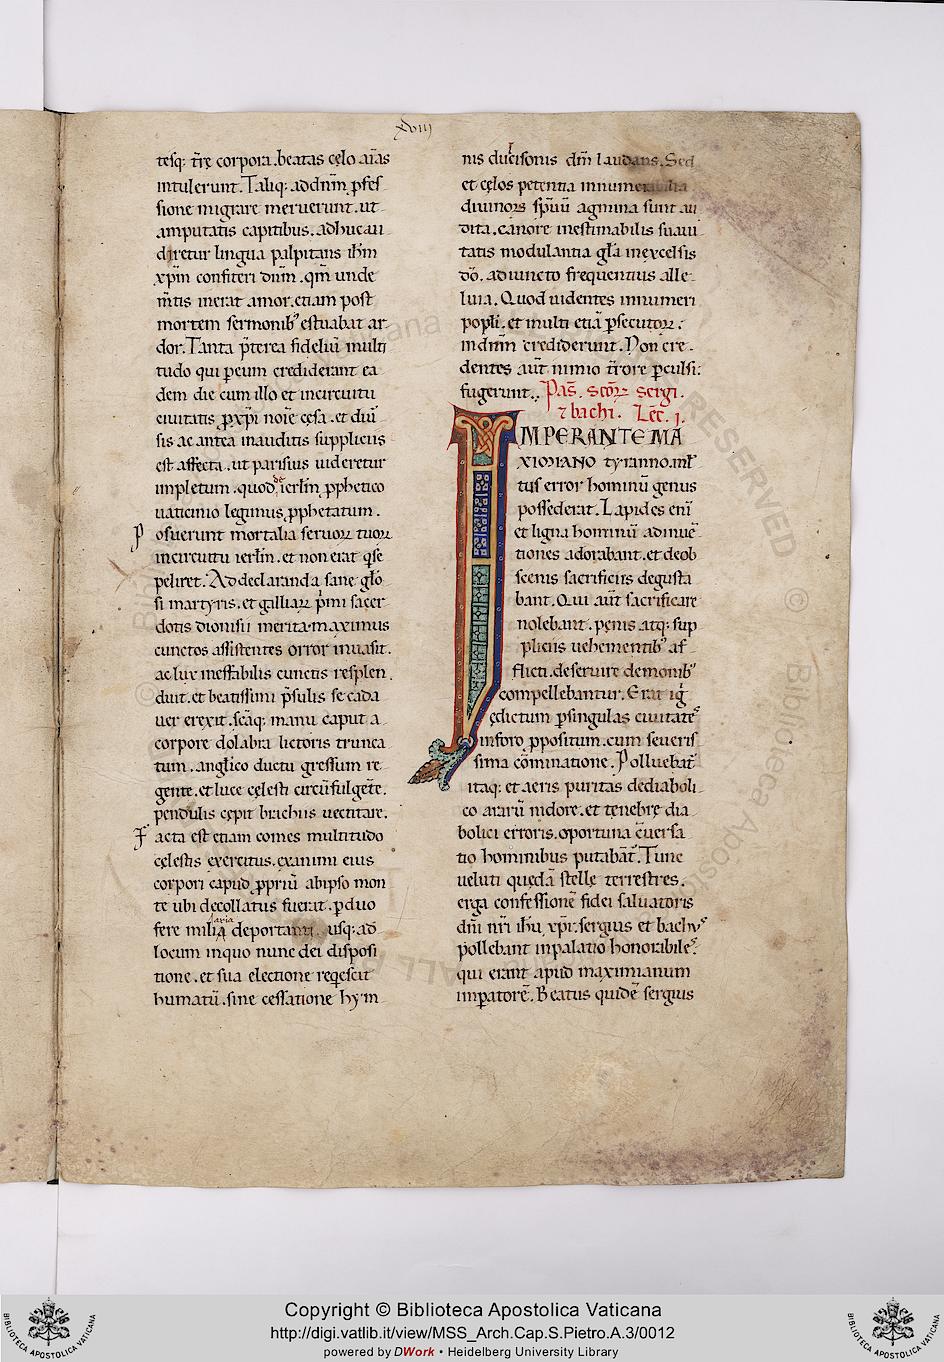 xviij
tesq: t̄rę corpora. beatas cęlo ai̅as
intulerunt. Taliq: ad dn̅m p̱fes-
sione migrare meruerunt. ut
amputatis capitibus. adhuc au-
diretur lingua palpitans ih̅m
xp̅m confiteri dn̅m. qm̅ unde
m̅tis inerat amor. etiam post
mortem sermonib' estuabat ar-
dor. Tanta p̅terea fideliu̅ multi
tudo qui p̱eum crediderant ea
dem die cum illo et incircuitu
ciuitatis p̱xp̅i noi̅e cęsa. et diu̅-
sis ac antea inauditis suppliciis
est affecta. ut parisius uideretur
impletum. quod de ierl̅m p̱phetico
uaticinio legimus p̱phetatum.
Posuerunt mortalia seruoꝝ tuoꝝ
incircuitu ierl̅m. et non erat q̇ se
peliret. Ad declaranda sane gl̅o
si martyris. et galliaꝝ p̅mi sacer
dotis dionisii merita. maximus
cunctos assistentes orror inuasit.
ac lux ineffabilis cunctis resplen
duit. et beatissimi p̅sulis se cada
uer erexit. sc̅aq: manu caput a
corpore dolabra lictoris trunca
tum. anglico ductu gressum re-
gente. et luce cęlesti circu̅fulgēte.
pendulis cępit brachiis uectitare.
Facta est etiam comes multitudo
cęlestis exercitus. exanimi eius
corpori capud p̱priu̅ ab ipso mon
te ubi decollatus fuerat. p̱duo
fere milia deportanti. usq: ad
locum inquo nunc dei disposi
tione. et sua electione reqescit
humatu̅. sine cessatione hym-
nis dulcisonis dn̅m laudans. Sed
et cęlos petentia innumerabilia
diuinoꝝ sp̅uu̅ agmina sunt au
dita. canore inestimabilis suaui
tatis modulantia gl̅a inexcelsis
dō. adiuncto frequentius alle-
luia. Quod uidentes innumeri
popli. et multi etia̅ p̱secutoꝝ.
indn̅m crediderunt. Non cre-
dentes aut̅ nimio t̄rore p̱culsi:
fugerunt. Pas̅. scōꝝ sergi.
⁊ bachi. Lēc. j.
IMPERANTE MA
XIMIANO tyranno. ml̅
tus error hominu̅ genus
possederat. Lapides eni̅
et ligna hominu̅ adinue̅
tiones adorabant. et deob
scenis sacrificiis degusta
bant. Qui aut̅ sacrificare
nolebant. pęnis atq: sup
pliciis uehementib' af
flicti. deseruire demonib'
compellebantur. Erat ig̅
ędictum p̱singulas ciuitate̅s
inforo p̱positum. cum seueris
sima co̅minatione. Polluebat̅
itaq: et aeris puritas dediaboli-
co araru̅ nidore. et tenebrę dia
bolici erroris. oportuna c̄uersa
tio hominibus putabāt̅. Tunc
ueluti quęda̅ stellę terrestres.
erga confessione̅ fidei saluatoris
dn̅i nr̅i ih̅u xp̅i. sergius et bachus
pollebant inpalatio honorabiles.
qui erant apud maximianum
imp̱atore̅. Beatus quide̅ sergius
Copyright © Biblioteca Apostolica Vaticana
http://digi.vatlib.it/view/MSS_Arch.Cap.S.Pietro.A.3/0012
powered by DWork • Heidelberg University Library